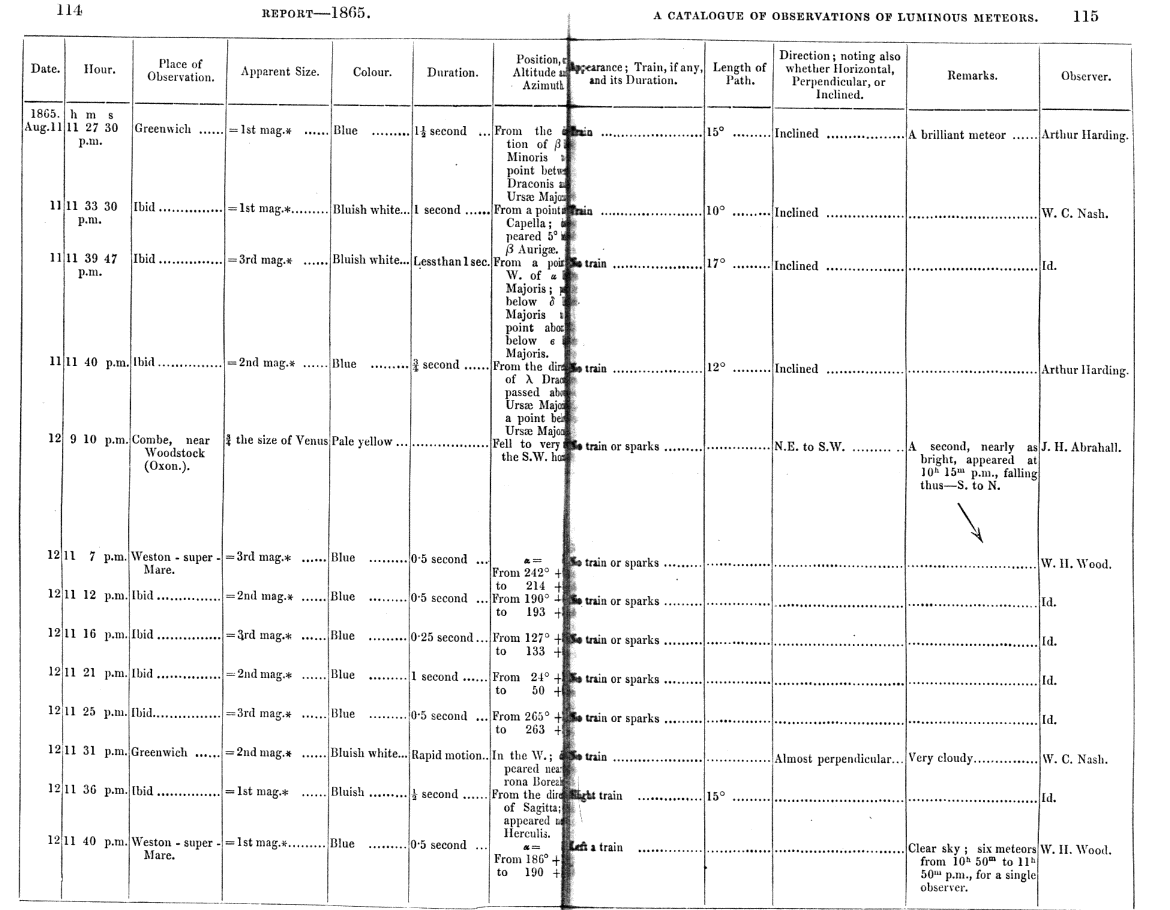 114 REPORT—1865.
A CATALOGUE OF OBSERVATIONS OF LUMINOUS METEORS. 115
Date. Hour. Place of Observation. Apparent Size. Colour. Duration. Position, Altitude Azimuth Appearance; Train, if any, and its Duration. Length of Path. Direction; noting also whether Horizontal, Perpendicular, or Inclined. Remarks. Observer.
1865. h m s
Aug.11 11 27 30 Greenwich ...... =1st mag.* ...... Blue ......... 1½ second ... From the Train .................. 15° ........ Inclined .................. A brilliant meteor ...... Arthur Harding.
p.m. tion of β
Minoris
point
Draconis
Ursæ
11 11 33 30 Ibid ............... =1st mag.*......... Bluish white... 1 second ...... From a point Train .................. 10° ........ Inclined .................. ........................ W. C. Nash.
p.m. Capella;
peared 5°
β Aurigæ.
11 11 39 47 Ibid ............... =3rd mag.* ...... Bluish white... Less than 1 sec. From a No train .................. 17° ........ Inclined .................. ........................ Id.
p.m. W. of α
Majoris;
below δ
Majoris
point
below ϵ
Majoris.
11 11 40 p.m. Ibid ............... =2nd mag.* ...... Blue ......... ¾ second ...... From the No train .................. 12° ........ Inclined .................. ........................ Arthur Harding.
of λ
passed
Ursæ
a point
Ursæ
12 9 10 p.m. Combe, near ¾ the size of Venus Pale yellow ... ............... Fell to very No train or sparks ......... ............ N.E. to S.W. ............ A second, nearly as J. H. Abrahall.
Woodstock the S.W. bright, appeared at
(Oxon.). 10ʰ 15ᵐ p.m., falling
thus—S. to N.
12 11 7 p.m. Weston-super- =3rd mag.* ...... Blue ......... 0·5 second ... α= No train or sparks ......... ............ ........................ ........................ W. H. Wood.
Mare. From 242° +
to 214 +
12 11 12 p.m. Ibid ............... =2nd mag.* ...... Blue ......... 0·5 second ... From 190° + No train or sparks ......... ............ ........................ ........................ Id.
to 193 +
12 11 16 p.m. Ibid ............... =3rd mag.* ...... Blue ......... 0·25 second... From 127° + No train or sparks ......... ............ ........................ ........................ Id.
to 133 +
12 11 21 p.m. Ibid ............... =2nd mag.* ...... Blue ......... 1 second ...... From 24° + No train or sparks ......... ............ ........................ ........................ Id.
to 50 +
12 11 25 p.m. Ibid............... =3rd mag.* ...... Blue ......... 0·5 second ... From 265° + No train or sparks ......... ............ ........................ ........................ Id.
to 263 +
12 11 31 p.m. Greenwich ...... =2nd mag.* ...... Bluish white... Rapid motion.. In the W.; No train .................. ............ Almost perpendicular... Very cloudy............ W. C. Nash.
peared
rona
12 11 36 p.m. Ibid ............... =1st mag.* ...... Bluish ......... ½ second ...... From the Slight train ............ 15° ........ ........................ ........................ Id.
of Sagitta;
appeared
Herculis.
12 11 40 p.m. Weston-super- =1st mag.*......... Blue ......... 0·5 second ... α= Left a train ............ ............ ........................ Clear sky; six meteors W. H. Wood.
Mare. From 186° + from 10ʰ 50ᵐ to 11ʰ
to 190 + 50ᵐ p.m., for a single
observer.